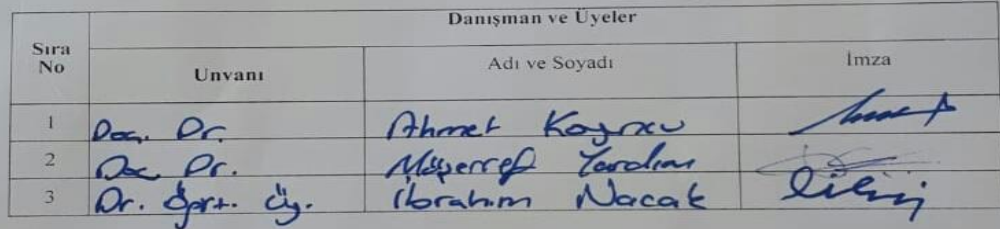 Danışman ve Üyeler
Sıra No Unvanı Adı ve Soyadı İmza
1 Doç. Dr. Ahmet Koyuncu
2 Doç. Dr. Müşerref Yardım
3 Dr. Öğrt. Üy. İbrahim Nacak